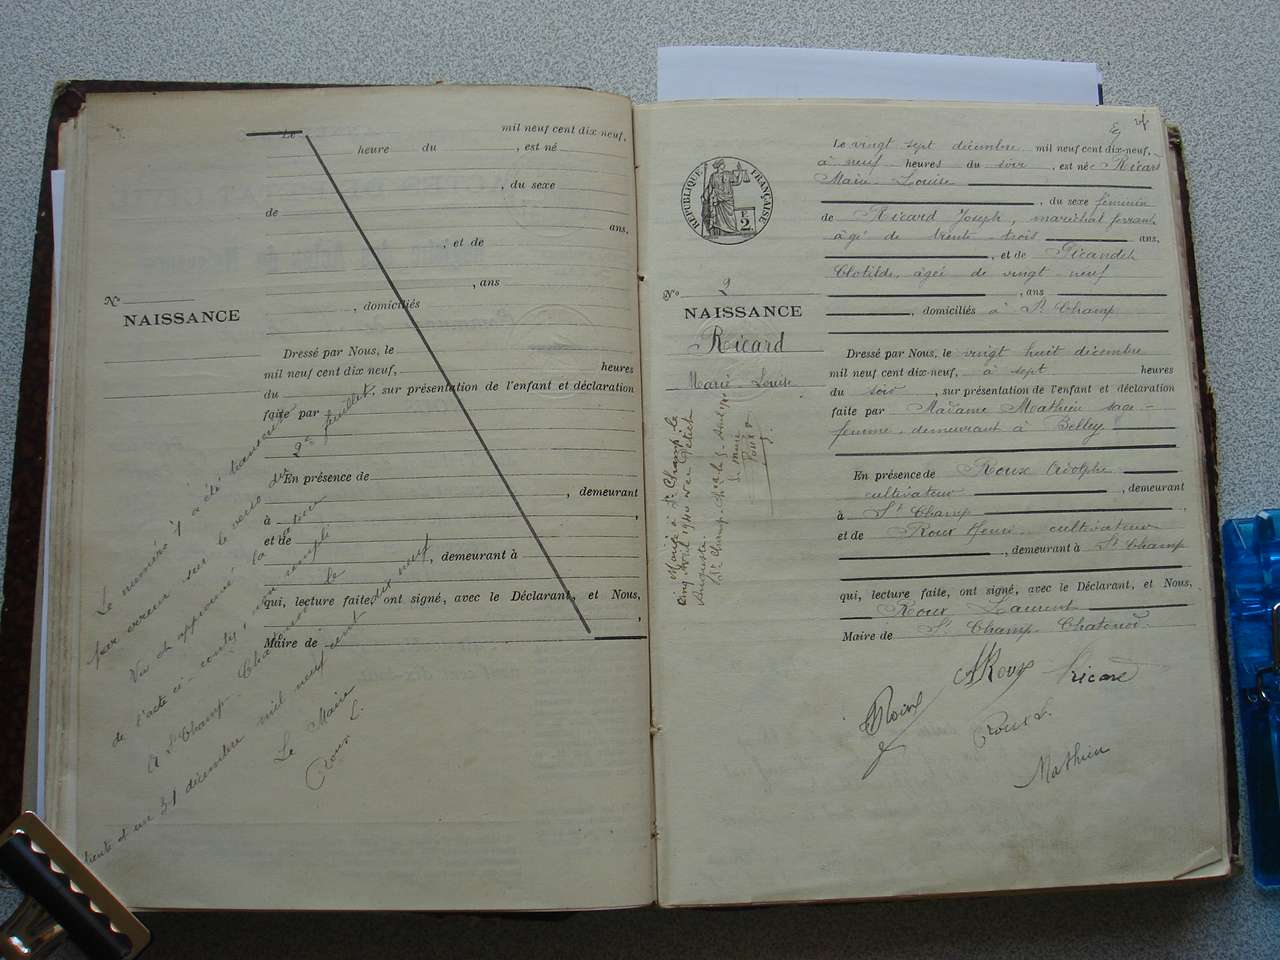 Le mil neuf cent dix neuf,
heure du , est né
, du sexe
de
ans,
, et de
, ans
, domiciliés
No
NAISSANCE
Dressé par Nous, le
mil neuf cent dix neuf, heures
du , sur présentation de l'enfant et déclaration
faite par
En présence de
, demeurant
à ,
et de
, demeurant à
qui, lecture faite, ont signé, avec le Déclarant, et Nous,
Maire de
Le numéro 7 a été transcrit
par erreur sur le verso du 2e feuillet
Vu et approuvé la rature
de l'acte ci-contre, non rempli
A St Champ-Chatonod le
trente et un 31 décembre mil neuf cent dix neuf
Le Maire
Roux L.
RÉPUBLIQUE FRANÇAISE
2
Le vingt sept décembre mil neuf cent dix-neuf,
à neuf heures du soir , est né Ricard
Marie Louise
, du sexe féminin
de Ricard Joseph, maréchal ferrant
âgé de trente-trois ans,
, et de
Clotilde, âgée de vingt neuf
, ans
, domiciliés à St Champ
No 9
NAISSANCE
Ricard
Marie Louise
Dressé par Nous, le vingt huit décembre
mil neuf cent dix-neuf, à sept heures
du soir , sur présentation de l'enfant et déclaration
faite par Madame Mathieu sage-
femme, demeurant à Belley
En présence de Roux Adolphe
cultivateur , demeurant
à St Champ ,
et de Roux Henri cultivateur
, demeurant à St Champ
qui, lecture faite, ont signé, avec le Déclarant, et Nous,
Roux Laurent
Maire de St Champ-Chatonod
Mariée à St Champ le
cinq avril 1940 avec
Augustin
St Champ-Ch. le 5 avril 1940
Le Maire
Roux
ARoux Ricard
Roux
Roux L.
Mathieu